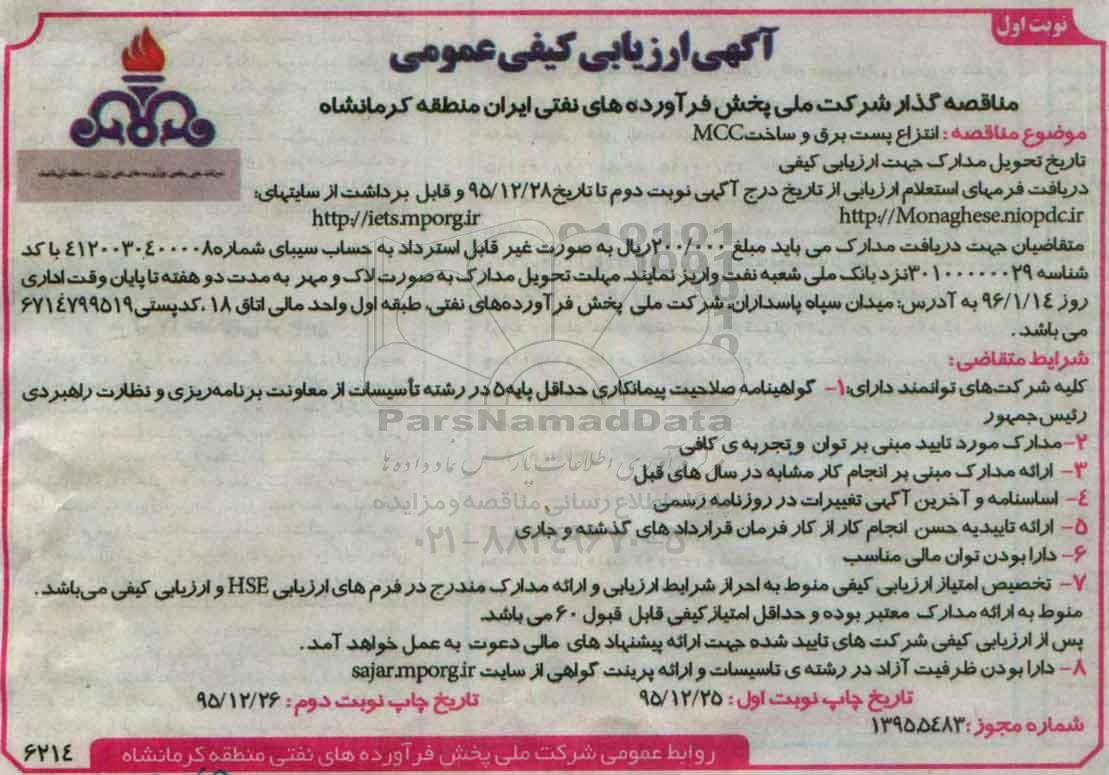 نوبت اول
آگهی ارزیابی کیفی عمومی
مناقصه گذار شرکت ملی پخش فرآورده های نفتی ایران منطقه کرمانشاه
موضوع مناقصه: انتزاع پست برق و ساخت MCC
تاریخ تحویل مدارک جهت ارزیابی کیفی
دریافت فرمهای استعلام ارزیابی از تاریخ درج آگهی نوبت دوم تا تاریخ ۹۵/۱۲/۲۸ و قابل برداشت از سایتهای:
http://Monaghese.niopdc.ir http://iets.mporg.ir
متقاضیان جهت دریافت مدارک می باید مبلغ ۲۰۰/۰۰۰ ریال به صورت غیر قابل استرداد به حساب سیبای شماره ۴۱۲۰۰۳۰۴۰۰۰۰۸ با کد
شناسه ۳۰۱۰۰۰۰۰۰۲۹ نزد بانک ملی شعبه نفت واریز نمایند. مهلت تحویل مدارک به صورت لاک و مهر به مدت دو هفته تا پایان وقت اداری
روز ۹۶/۱/۱۴ به آدرس: میدان سپاه پاسداران، شرکت ملی پخش فرآورده‌های نفتی، طبقه اول واحد مالی اتاق ۱۸، کدپستی ۶۷۱۴۷۹۹۵۱۹
می باشد.
شرایط متقاضی:
کلیه شرکت‌های توانمند دارای: ۱- گواهینامه صلاحیت پیمانکاری حداقل پایه ۵ در رشته تأسیسات از معاونت برنامه‌ریزی و نظارت راهبردی
رئیس‌جمهور
۲- مدارک مورد تایید مبنی بر توان و تجربه ی کافی
۳- ارائه مدارک مبنی بر انجام کار مشابه در سال های قبل
۴- اساسنامه و آخرین آگهی تغییرات در روزنامه رسمی
۵- ارائه تاییدیه حسن انجام کار از کار فرمان قرارداد های گذشته و جاری
۶- دارا بودن توان مالی مناسب
۷- تخصیص امتیاز ارزیابی کیفی منوط به احراز شرایط ارزیابی و ارائه مدارک مندرج در فرم های ارزیابی HSE و ارزیابی کیفی می‌باشد.
منوط به ارائه مدارک معتبر بوده و حداقل امتیاز کیفی قابل قبول ۶۰ می باشد.
پس از ارزیابی کیفی شرکت های تایید شده جهت ارائه پیشنهاد های مالی دعوت به عمل خواهد آمد.
۸- دارا بودن ظرفیت آزاد در رشته ی تاسیسات و ارائه پرینت گواهی از سایت sajar.mporg.ir
تاریخ چاپ نوبت اول: ۹۵/۱۲/۲۵ تاریخ چاپ نوبت دوم: ۹۵/۱۲/۲۶
شماره مجوز: ۱۳۹۵.۵۴۸۳
روابط عمومی شرکت ملی پخش فرآورده های نفتی منطقه کرمانشاه
۶۲۱۴
ParsNamadData